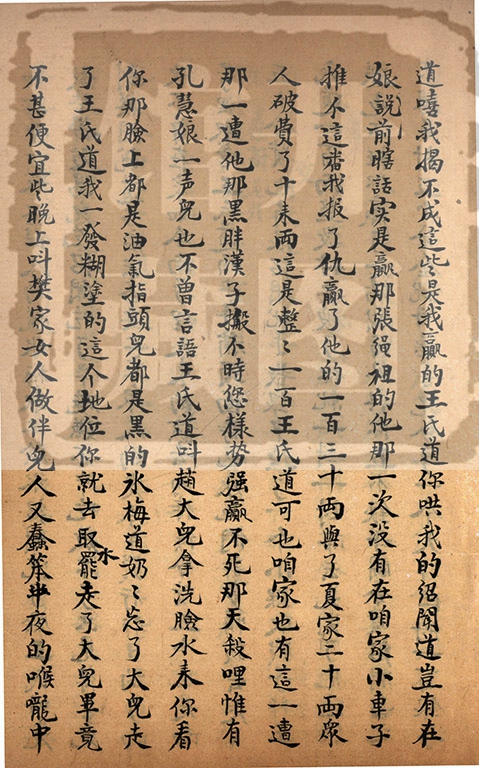 道嘻我揭不成這些是我贏的王氏道你哄我的紹聞道豈有在
娘説前瞎話实是贏那張绳祖的他那一次没有在咱家小車子
推不這番我报了仇贏了他的一百三十両與了夏家二十両眾
人破費了十来両這是整〻一百王氏道可也咱家也有這一遭
那一遭他那黑胖漢子搬不時您樣势强贏不死那天殺哩惟有
孔慧娘一声兒也不曾言語王氏道叫趙大兒拿洗臉水来你看
你那臉上都是油氣指頭兒都是黑的氷梅道奶〻忘了大兒走
了王氏道我一發糊塗的這个地位你就去取水罷走了大兒畢竟
不甚便宜些晚上叫樊家女人做伴兒人又蠢笨半夜的喉嚨中